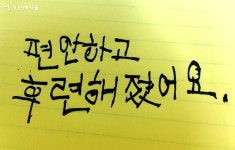 편안하고
후련해졌어요.